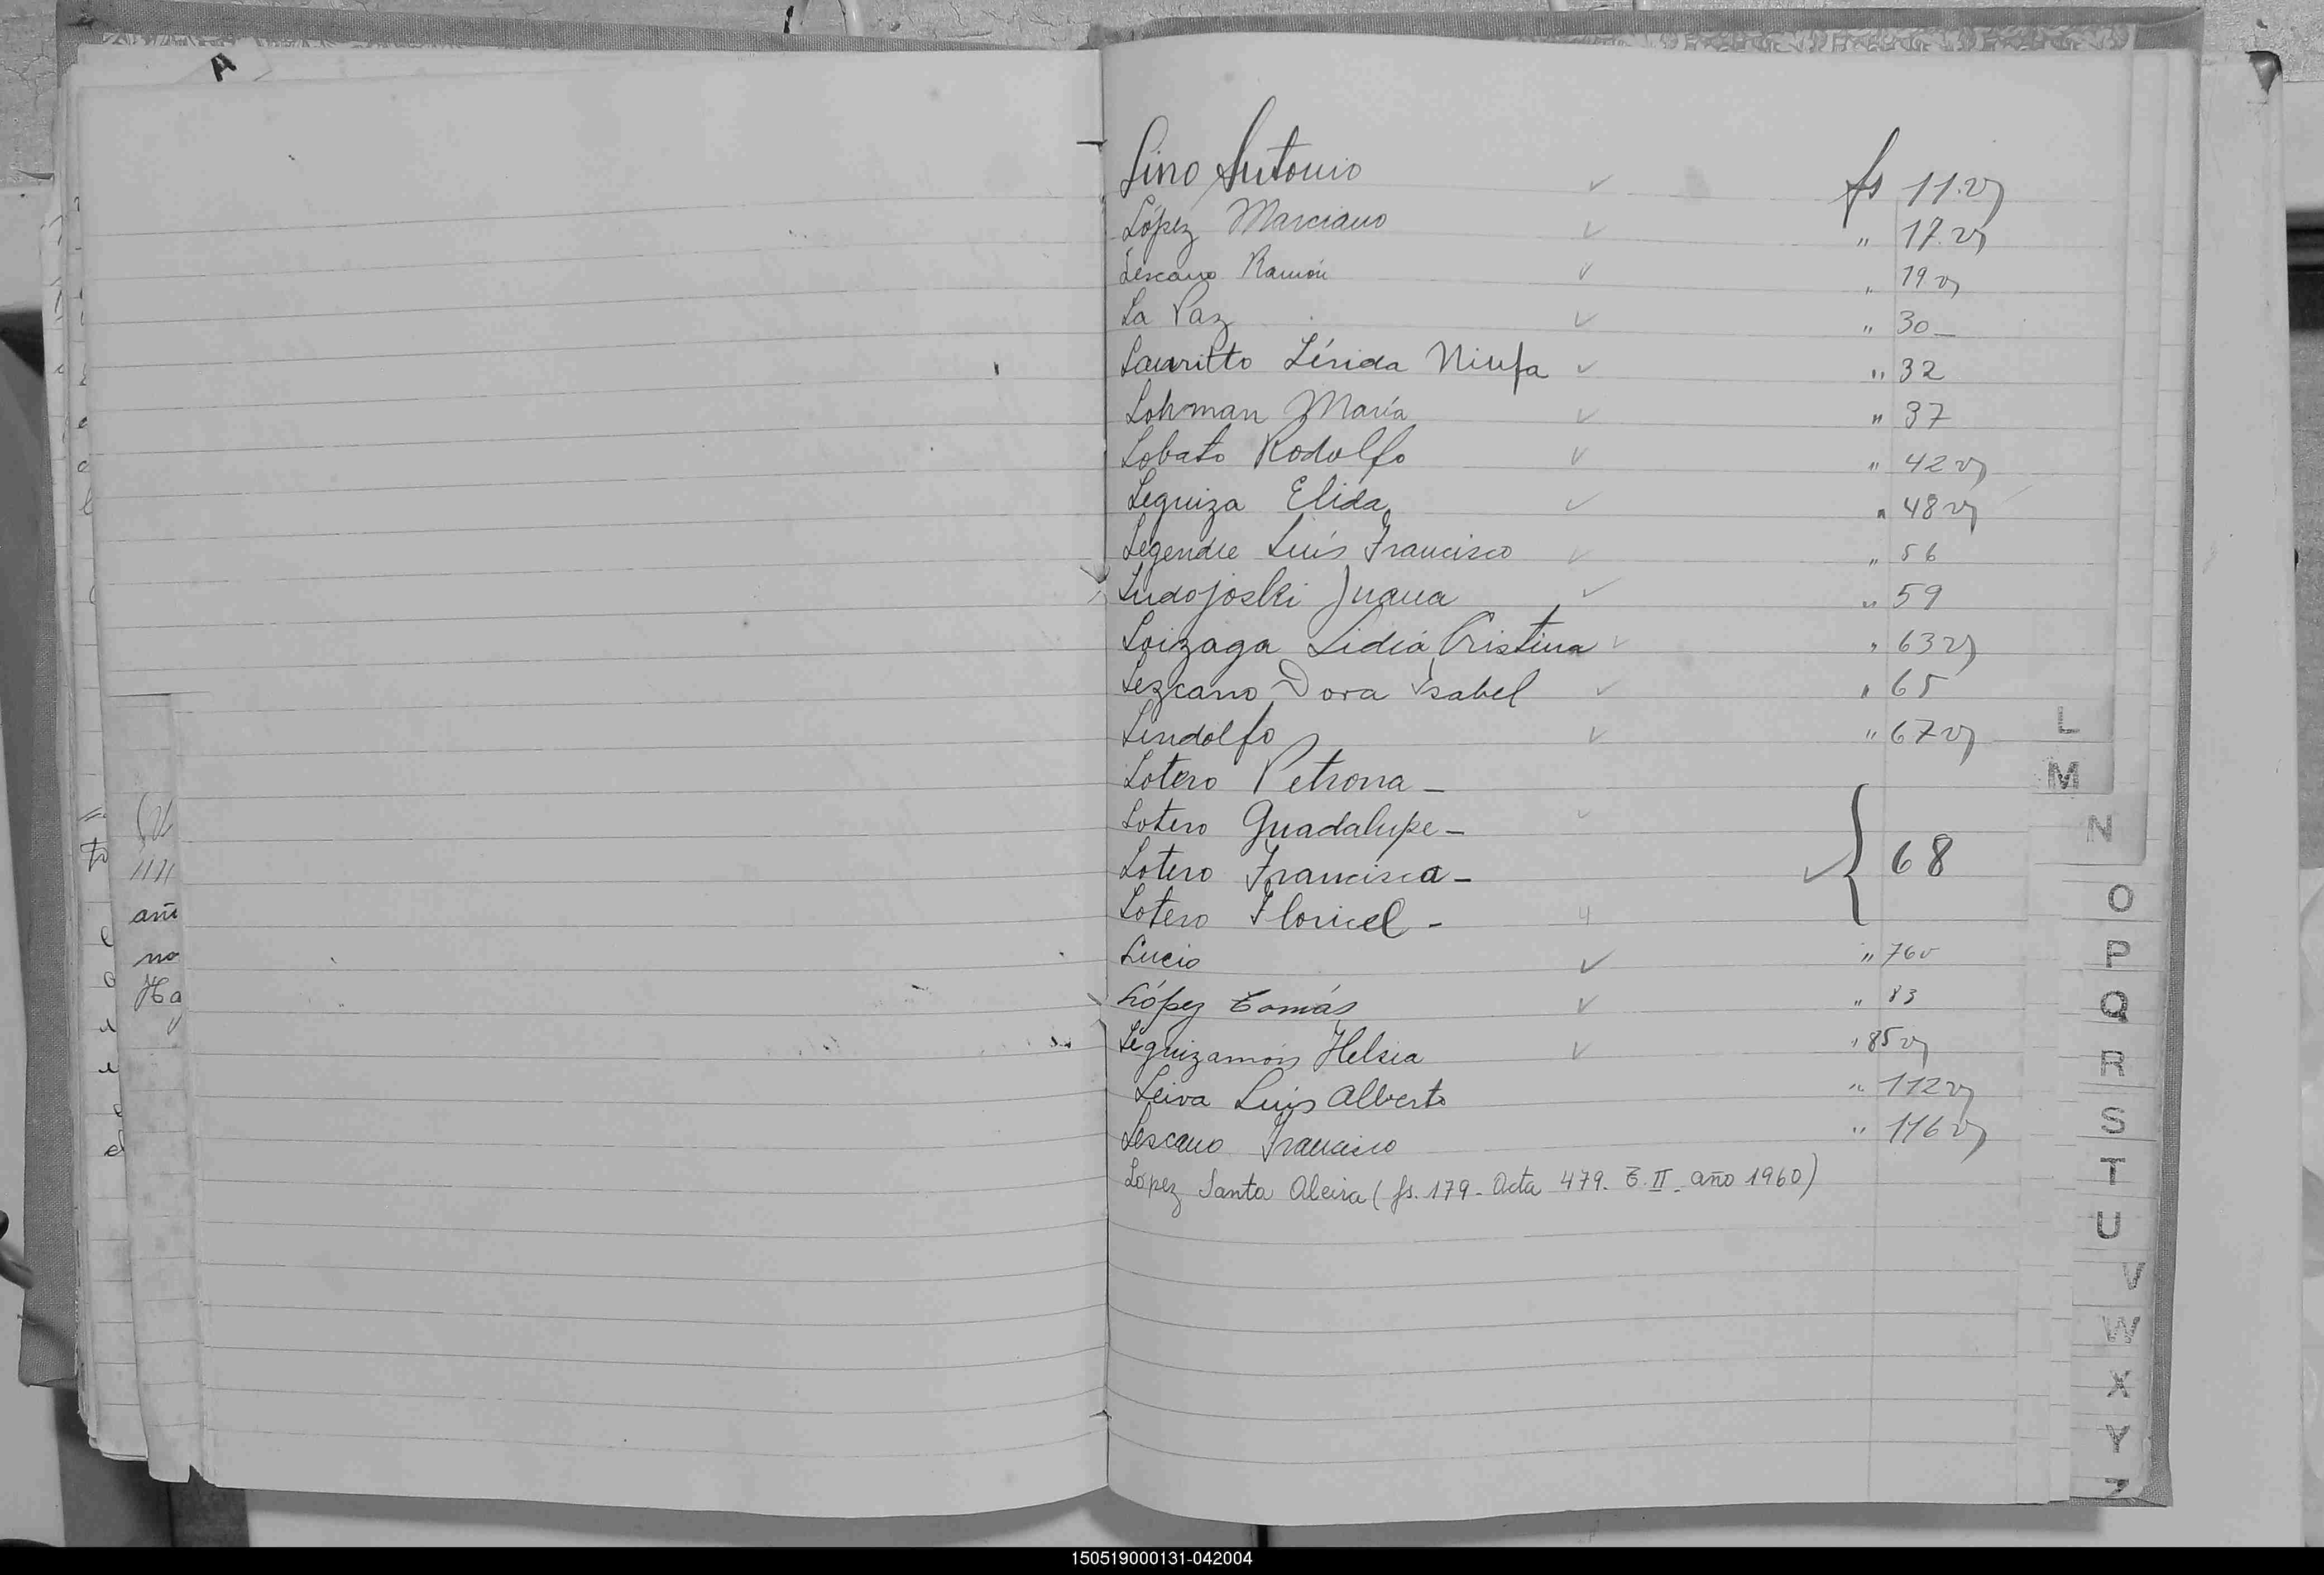 A
Lino Antonio fs 11.v
López Marciano " 17.v
Lescano Ramón " 19 v
La Paz " 30 -
Lauritto Lérida Ninfa " 32
Lohman María " 37
Lobato Rodolfo " 42 v
Leguiza Elida " 48 v
Legendre Luís Francisco " 56
Ludojoski Juana " 59
Loizaga Lidia Cristina " 63 v
Lezcano Dora Isabel " 65
Lindolfo " 67 v
Lotero Petrona -
Lotero Guadalupe -
Lotero Francisca - 68
Lotero Floricel -
Lucio " 76v
López Tomás " 83
Leguizamón Helsia " 85 v
Leiva Luis Alberto " 112 v
Lescano Francisco " 116 v
López Santa (fs. 179 - Acta 479. T. II - año 1960)
L
M
N
O
P
Q
R
S
T
U
V
W
X
Y
Z
no
Ha
150519000131-042004